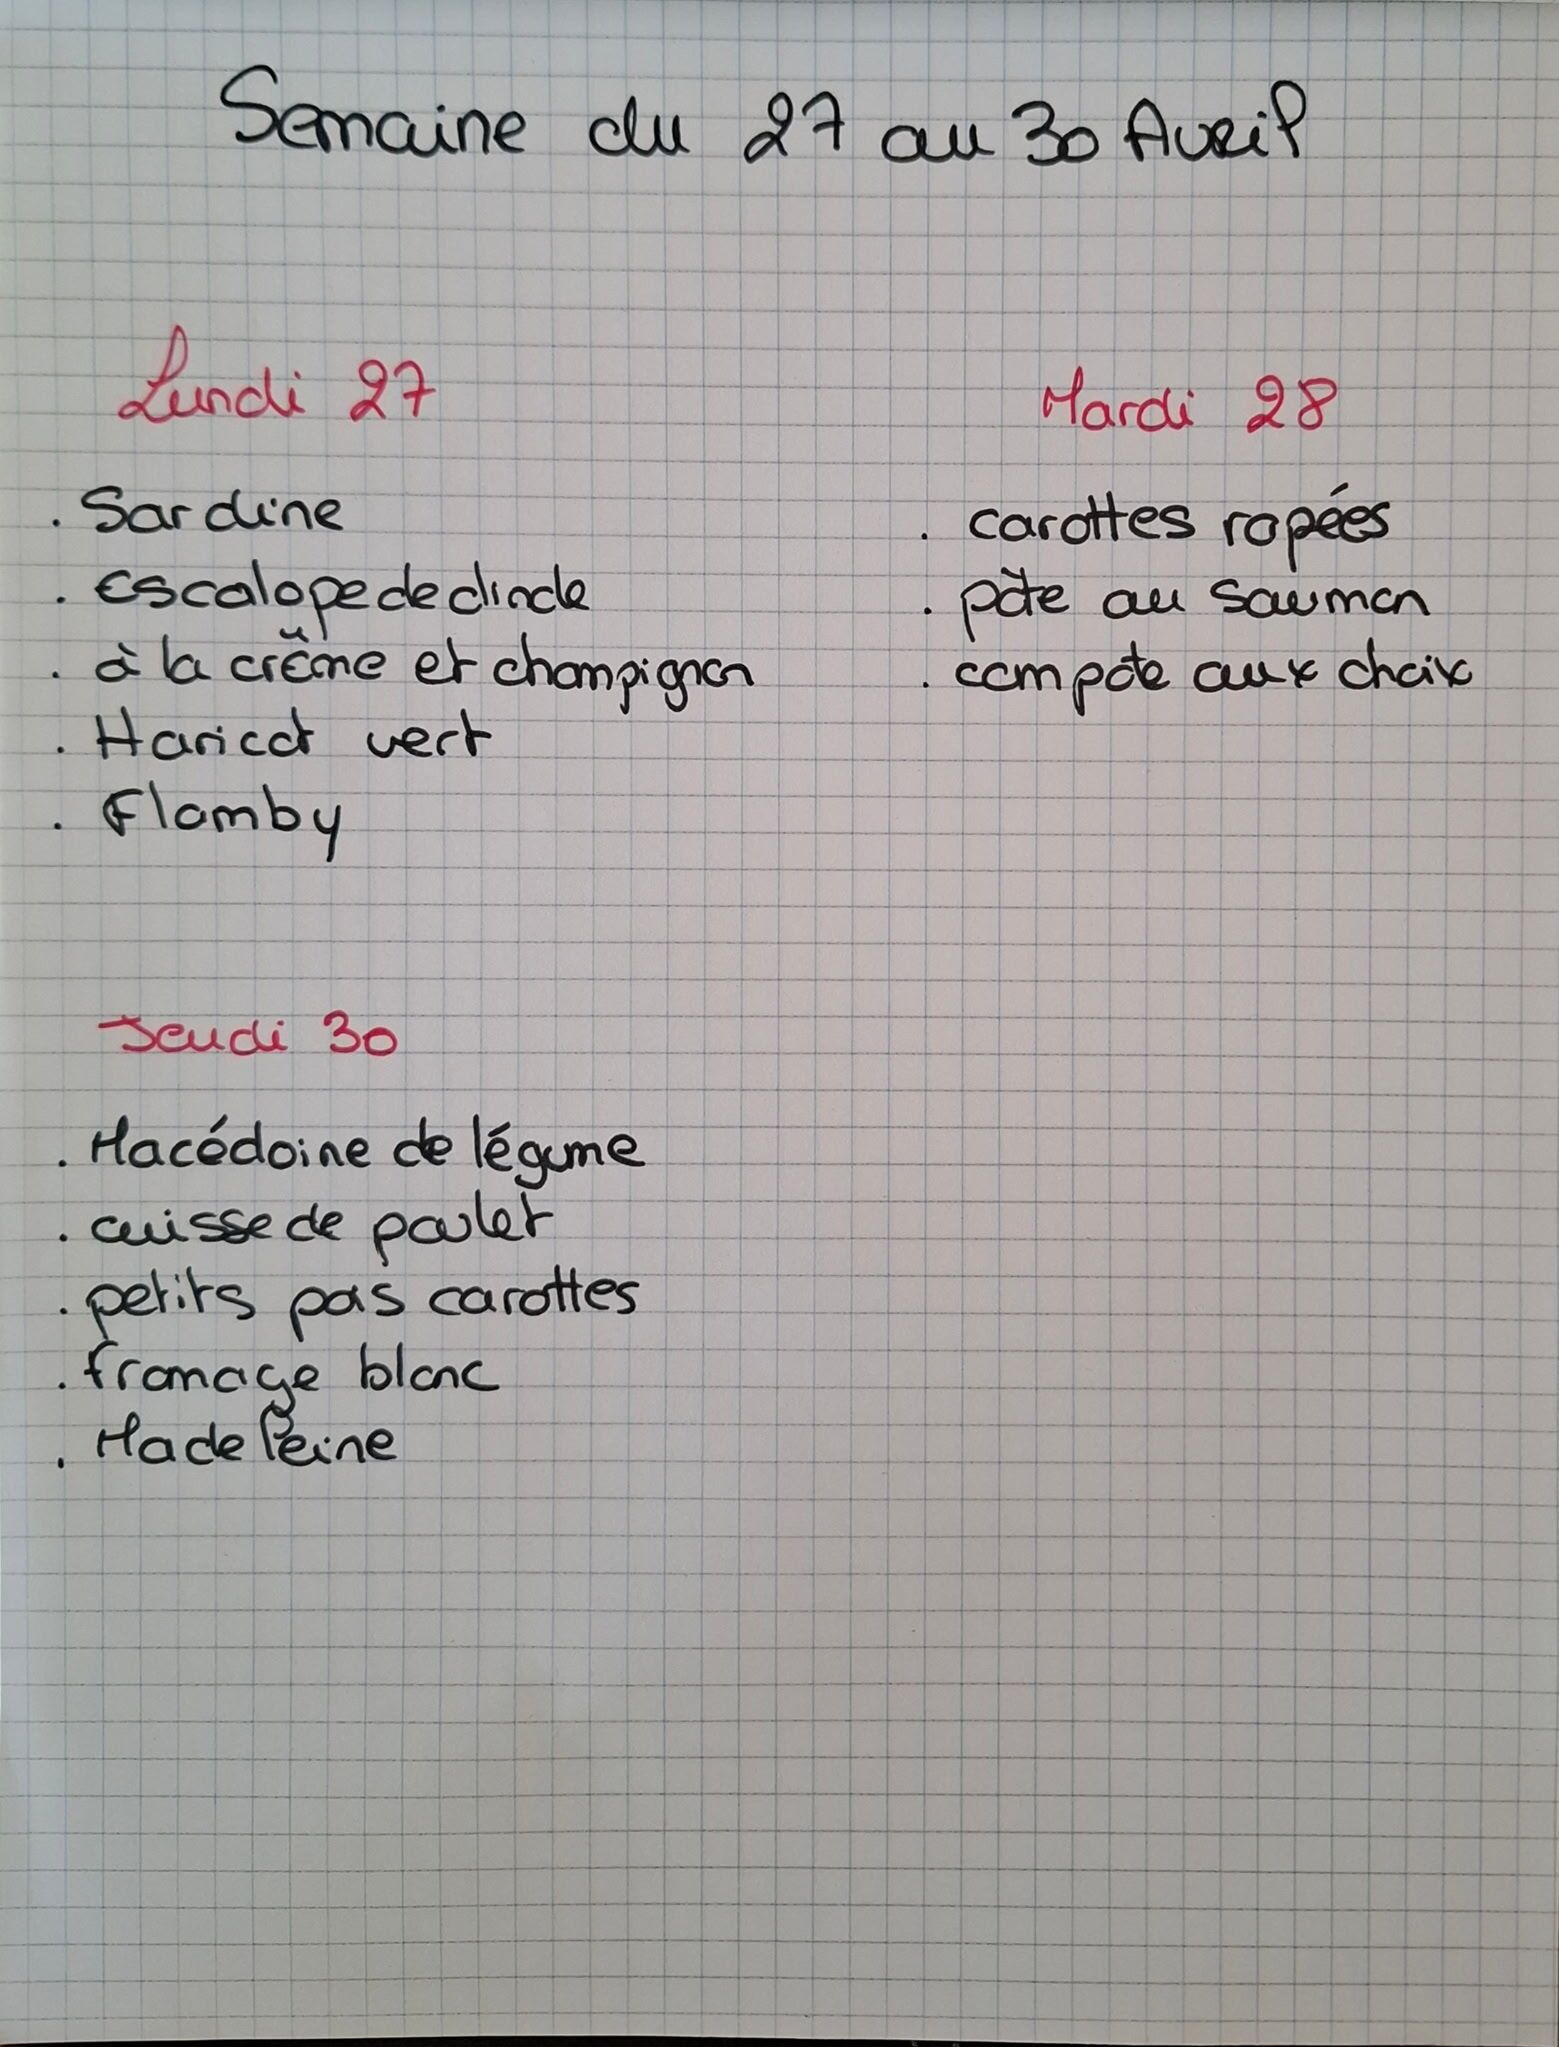 Semaine du 27 au 30 Avril
Lundi 27
. Sardine
. Escalope de dinde
. à la crème et champignon
. Haricot vert
. Flamby
Mardi 28
. carottes rapées
. pâte au saumon
. compote aux choix
Jeudi 30
. Macédoine de légume
. cuisse de poulet
. petits pois carottes
. fromage blanc
. Madeleine